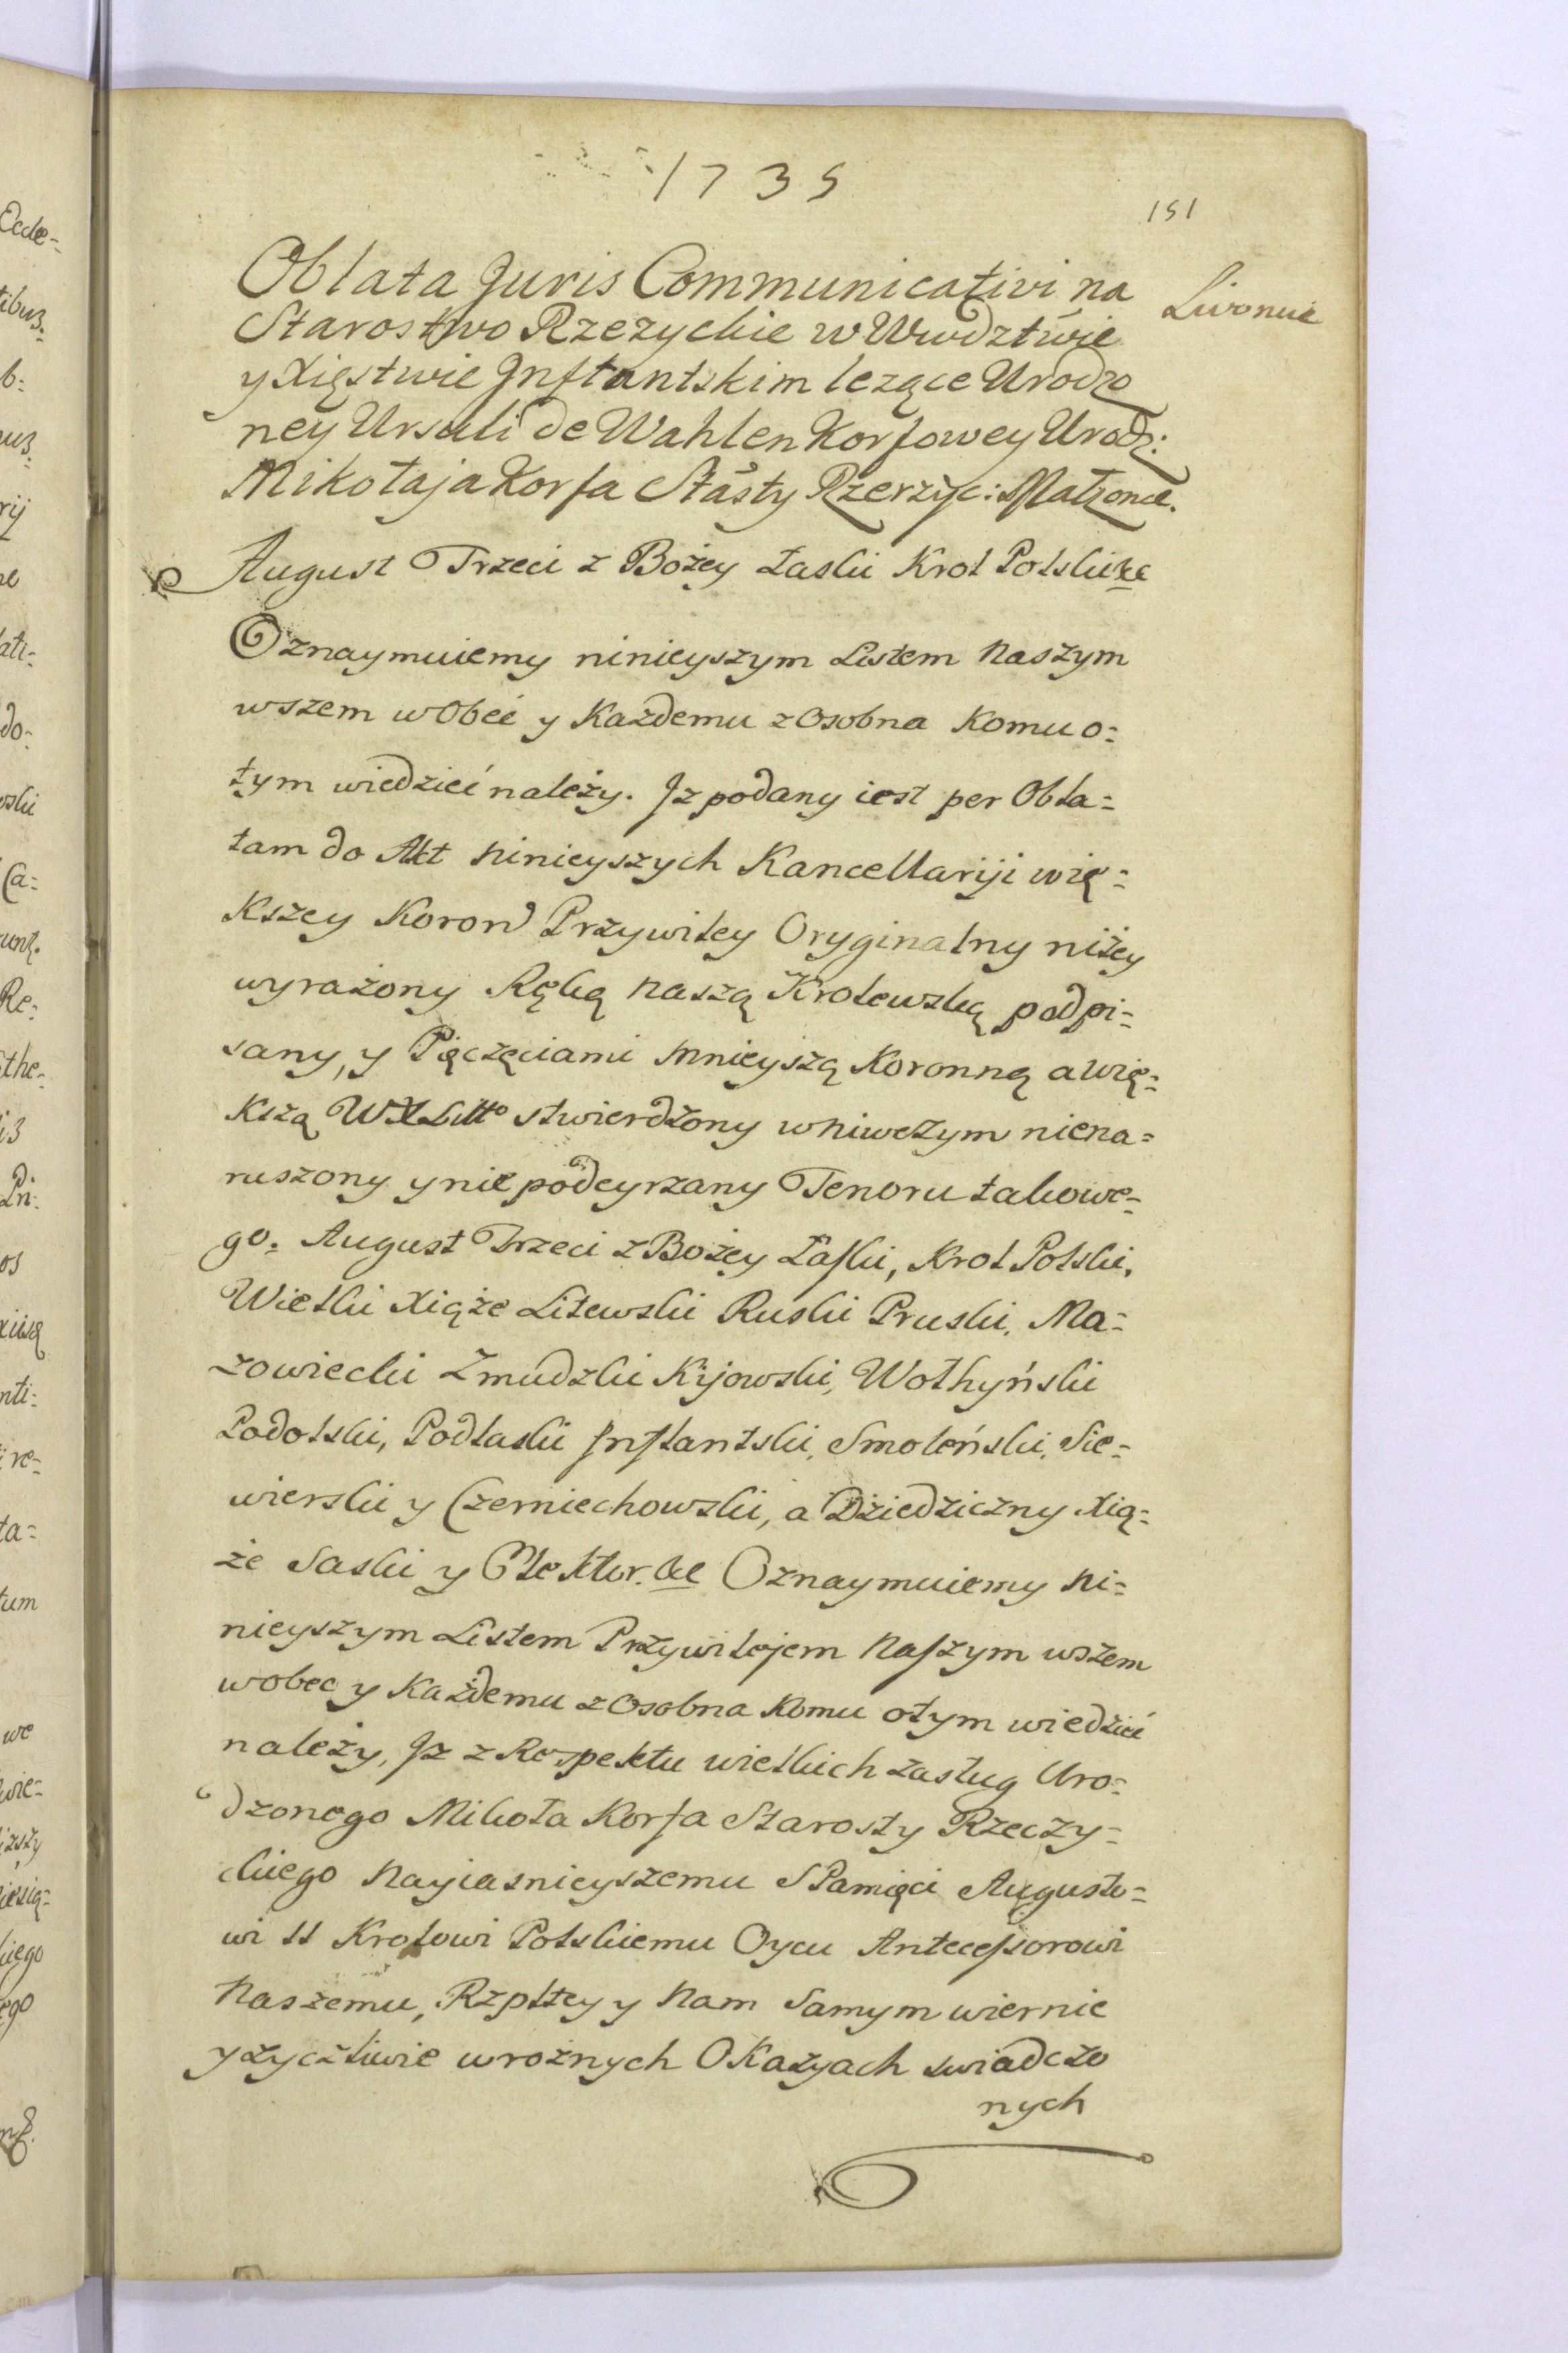 1735
151
Oblata Juris Communicativi na
Livoniae
Starostwo Rzezyckie w Wwdztwie
y Xięstwie Inflantskim lezące Urodzo
ney Ursuli de Wahlen Korfowey Urodz:
Mikołaja Korfa Stásty Rzerzyc: Małzonce.
August Trzeci z Bożey Łaski Krol Polski &c
Oznaymuiemy ninieyszym Listem Naszym
wszem wobec y Każdemu z Osobna Komu o=
tym wiedzieć należy. Iz podany iest per Obla=
tam do Akt ninieyszych Kancellaryi wię=
Kszey Koron Przywiley Oryginalny niżey
wyrażony Ręką naszą Krolewską podpi=
sany, y Pięczęciami mnieyszą Koronną a Wię=
Kszą WXLitto stwierdzony w niwczym niena=
ruszony y nie podeyrzany Tenoru takowe=
go. August Trzeci z Bożey Łaski, Krol Polski,
Wielki Xiąże Litewski Ruski Pruski, Ma=
zowiecki Zmudzki Kijowski, Wołhyński
Podolski, Podlaski Inflantski, Smoleński, Sie=
wierski y Czerniechowski, a Dziedziczny Xią=
że Saski y Elektor. &c Oznaymuiemy ni=
nieyszym Listem Przywilejem Naszym wszem
wobec y Każdemu z Osobna Komu otym wiedzieć
należy, Iz z Respektu wielkich zasług Uro=
dzonego Mikoła Korfa Starosty Rzeczy=
ckiego Nayiasnieyszemu S Pamięci Augusto=
wi II Krolowi Polskiemu Oycu Antecessorowi
Naszemu, Rzpltey y Nam Samym wiernie
y zyczliwie w rożnych Okazyach swiadczo
nych